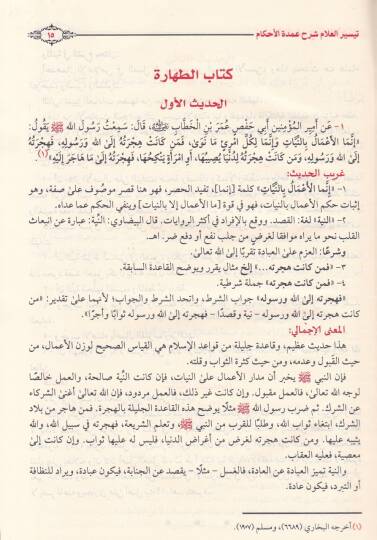 تيسير العلام شرح عمدة الأحكام
١٥
كتاب الطهارة
الحديث الأول
١- عَن أَمِيرِ المُؤْمِنين أَبِي حَفْصٍ عُمَرَ بْنِ الْخَطَّابِ رضي الله عنه، قَالَ: سَمِعْتُ رَسُولَ الله ﷺ يَقُولُ:
«إِنَّمَا الأَعْمَالُ بِالنِّيَّاتِ وَإِنَّمَا لِكُلِّ امْرِئٍ مَا نَوَىٰ، فَمَن كَانَتْ هِجْرَتُهُ إِلَىٰ اللهِ وَرَسُولِهِ، فَهِجْرَتُهُ
إِلَىٰ اللهِ وَرَسُولِهِ، وَمَن كَانَتْ هِجْرَتُهُ لِدُنْيَا يُصِيبُهَا، أَوِ امْرَأَةٍ يَنْكِحُهَا، فَهِجْرَتُهُ إِلَىٰ مَا هَاجَرَ إِلَيْهِ»(١)
غريب الحديث:
١- «إنَّمَا الأَعْمَالُ بِالنِّيَّاتِ» كلمة [إنما]، تفيد الحصر، فهو هنا قصر موصُوف علىٰ صفة، وهو
إثبات حكم الأعمال بالنيات، فهو في قوة [ما الأعمال إلا بالنيات] وينفي الحكم عما عداه.
٢- «النية» لغة: القصد. ووقع بالإفراد في أكثر الروايات. قال البيضاوي: النَّية: عبارة عن انبعاث
القلب نحو ما يراه موافقا لغرض من جلب نفع أو دفع ضر. اهـ.
وشرعًا: العزم علىٰ العبادة تقربًا إلىٰ الله تعالىٰ.
٣- «فمن كانت هجرته...» إلخ مثال يقرر ويوضح القاعدة السابقة.
٤- «فمن كانت هجرته» جملة شرطية.
«فهجرته إلىٰ الله ورسوله» جواب الشرط، واتحد الشرط والجواب؛ لأنهما علىٰ تقدير: «من
كانت هجرته إلىٰ الله ورسوله - نية وقصدًا - فهجرته إلىٰ الله ورسوله ثوابًا وأجرًا».
المعنى الإجمالي:
هذا حديث عظيم، وقاعدة جليلة من قواعد الإسلام هي القياس الصحيح لوزن الأعمال، من
حيث القَبول وعدمه، ومن حيث كثرة الثواب وقلته.
فإن النبي ﷺ يخبر أن مدار الأعمال علىٰ النيات، فإن كانت النَّية صالحة، والعمل خالصًا
لوجه الله تعالىٰ، فالعمل مقبول. وإن كانت غير ذلك، فالعمل مردود، فإن الله تعالىٰ أغنىٰ الشركاء
عن الشرك. ثم ضرب رسول الله ﷺ مثلًا يوضح هذه القاعدة الجليلة بالهجرة. فمن هاجر من بلاد
الشرك، ابتغاء ثواب الله، وطلبًا للقرب من النبي ﷺ، وتعلم الشريعة، فهجرته في سبيل الله، والله
يثيبه عليها. ومن كانت هجرته لغرض من أغراض الدنيا، فليس له عليها ثواب. وإن كانت إلىٰ
معصية، فعليه العقاب.
والنية تميز العبادة عن العادة، فالغسل - مثلًا - يقصد عن الجنابة، فيكون عبادة، ويراد للنظافة
أو التبرد، فيكون عادة.
(١) أخرجه البخاري (٦٦٨٩)، ومسلم (١٩٠٧).